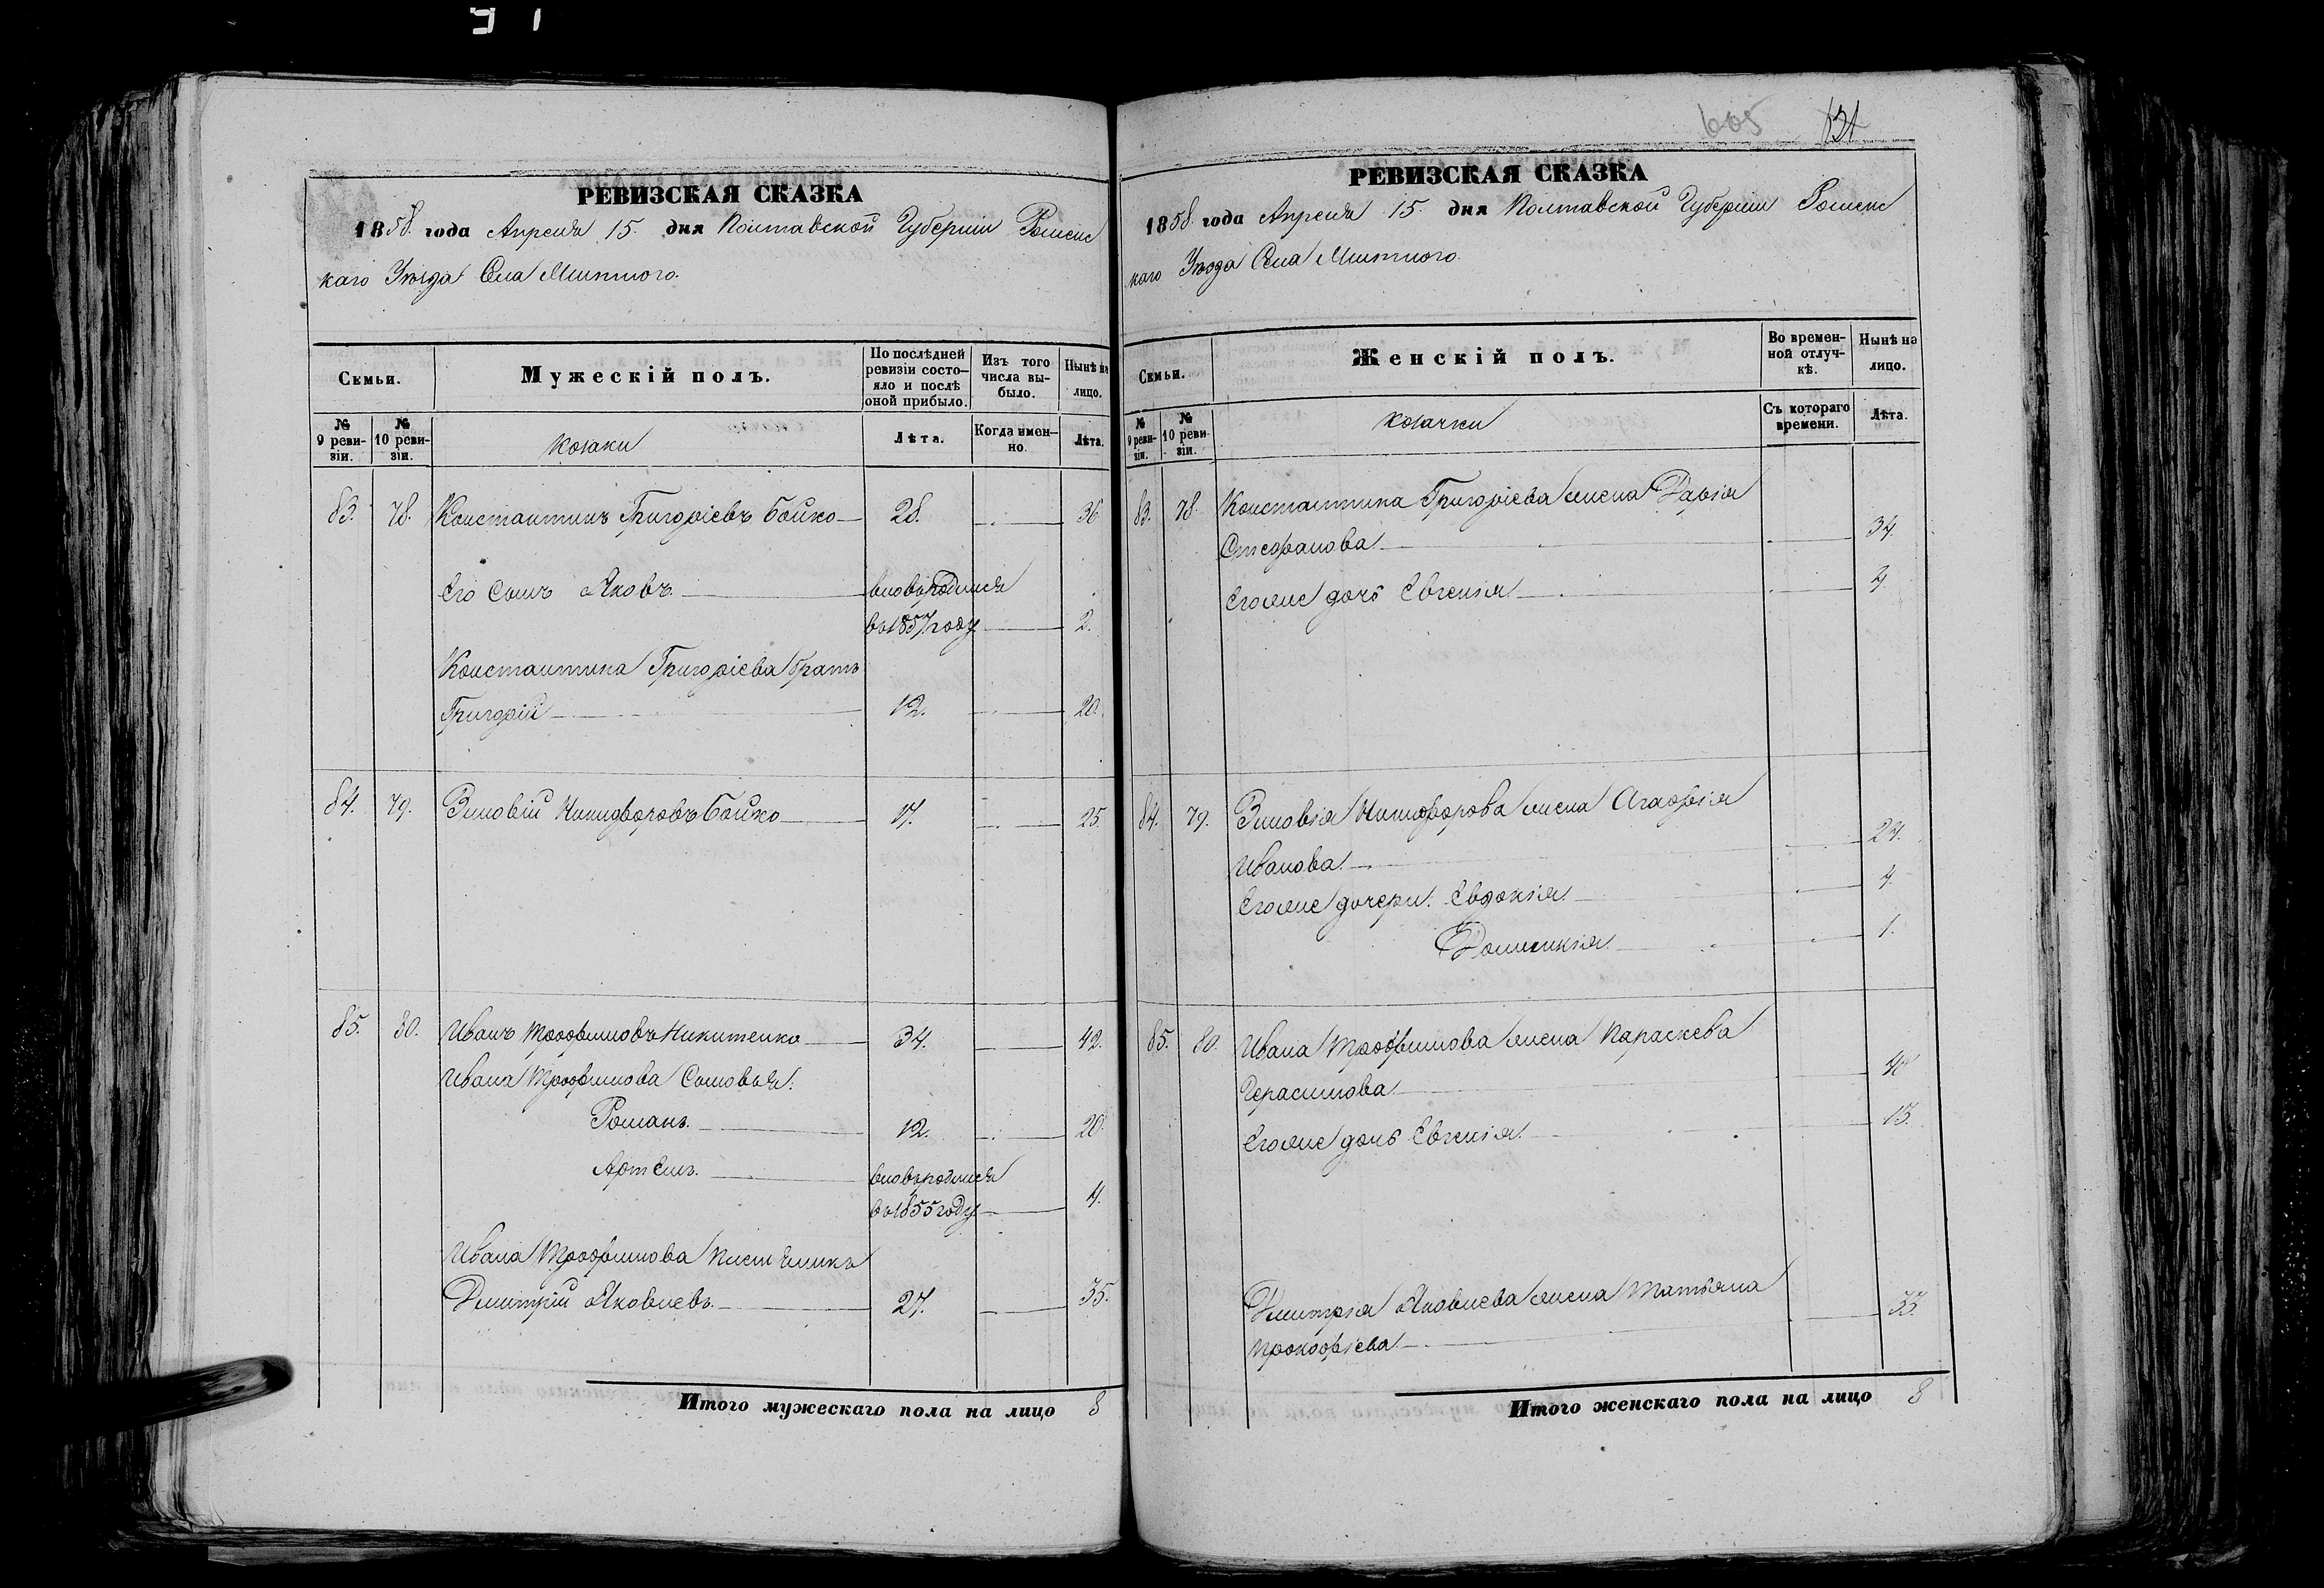 605 121
РЕВИЗСКАЯ СКАЗКА
1858. года Апреля 15. дня Полтавской Губерніи Роменс
каго Уѣзда Села
Семьи.
Мужескій полъ.
По послѣдней ревизіи состо-
яло и послѣ
оной прибыло.
Изъ того
числа вы-
было.
Нынѣ на
лицо.
№
9 реви-
зіи.
№
10 реви-
зіи.
Козаки
Лѣта.
Когда имен-
но.
Лѣта.
83. 78. Константинъ Григоріевъ Бойко 28. 36.
Его Сынъ Яковъ. вновьродился
въ 1857 году 2.
Константина Григоріева братъ
Григорій 12. 20.
84. 79. Зиновій Никифоровъ Бойко 17. 25.
85. 80. Иванъ Трофимовъ Никитенко 34. 42.
Ивана Трофимова Сыновья:
Романъ. 12. 20.
Артемъ. вновьродился
въ 1855 году 4.
Ивана Трофимова племянникъ
Дмитрій Яковлевъ. 27. 35.
Итого мужескаго пола на лицо 8
РЕВИЗСКАЯ СКАЗКА
1858. года Апреля 15. дня Полтавской Губерніи Роменс
каго Уѣзда Села
Семьи.
Женскій полъ.
Во времен-
ной отлуч-
кѣ.
Нынѣ на
лицо.
№
9 реви-
зіи.
№
10 реви-
зіи.
Козачки
Съ котораго
времени.
Лѣта.
83. 78. Константина Григоріева жена Дарія
Стефанова 34.
Егоже дочь Евгенія 4.
84. 79. Зиновія Никифорова жена Агафія
Иванова. 24.
Егоже дочери: Евдокія. 4.
Домникія 1.
85. 80. Ивана Трофимова жена Параскева
Герасимова 40
Егоже дочь Евгенія. 15.
Димитрія Яковлева жена Татьяна
Прокофіева 33.
Итого женскаго пола на лицо 8